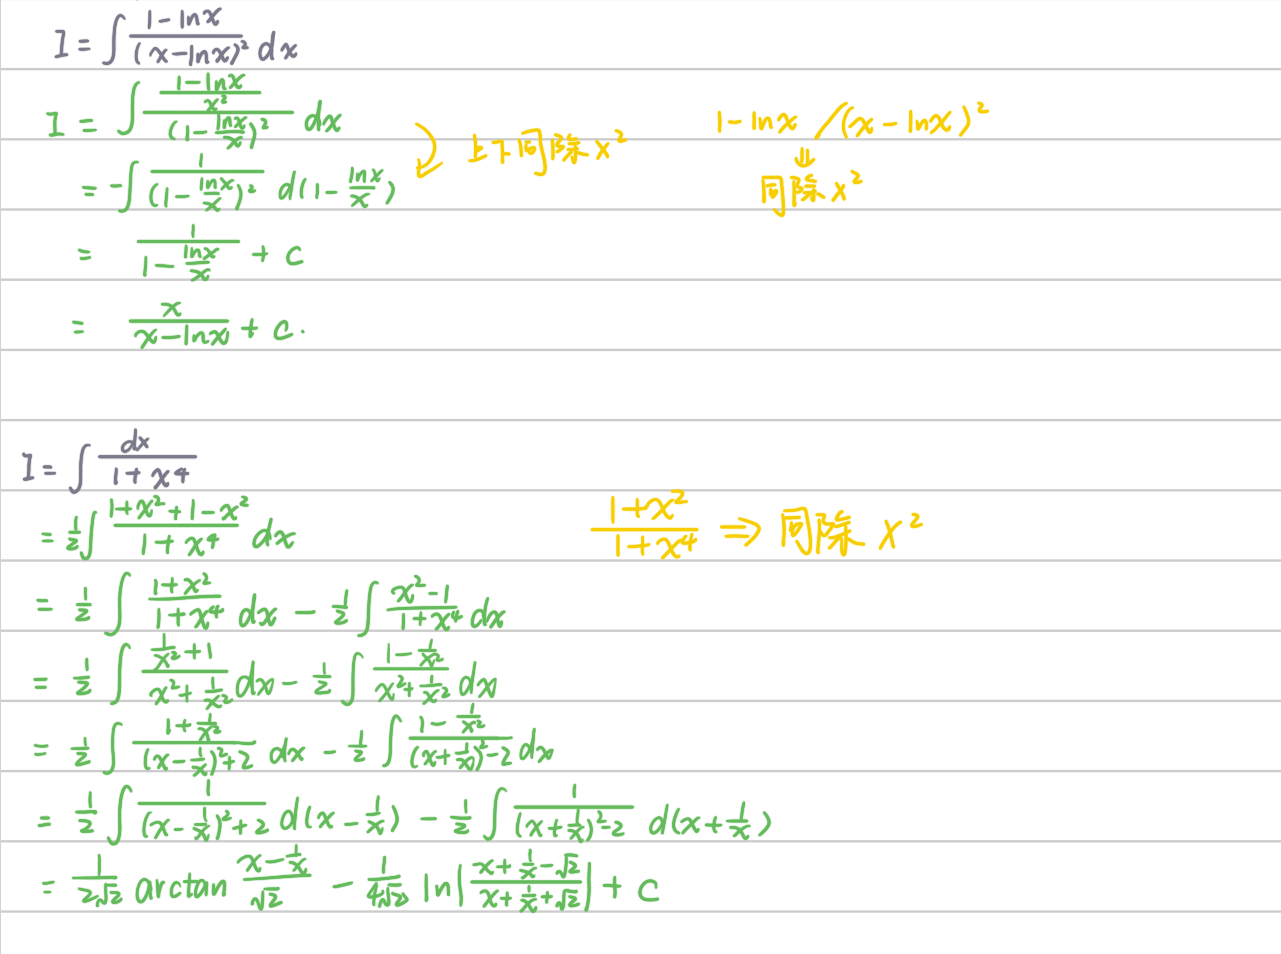 I = ∫ (1-lnx)/(x-lnx)² dx
I = ∫ ((1-lnx)/x²)/(1-lnx/x)² dx
上下同除 x²
1-lnx / (x-lnx)²
⇓
同除 x²
= -∫ 1/(1-lnx/x)² d(1-lnx/x)
= 1/(1-lnx/x) + C
= x/(x-lnx) + C.
I = ∫ dx/(1+x⁴)
= 1/2 ∫ (1+x²+1-x²)/(1+x⁴) dx
(1+x²)/(1+x⁴) ⇒ 同除 x²
= 1/2 ∫ (1+x²)/(1+x⁴) dx - 1/2 ∫ (x²-1)/(1+x⁴) dx
= 1/2 ∫ (1/x²+1)/(x²+1/x²) dx - 1/2 ∫ (1-1/x²)/(x²+1/x²) dx
= 1/2 ∫ (1+1/x²)/((x-1/x)²+2) dx - 1/2 ∫ (1-1/x²)/((x+1/x)²-2) dx
= 1/2 ∫ 1/((x-1/x)²+2) d(x-1/x) - 1/2 ∫ 1/((x+1/x)²-2) d(x+1/x)
= 1/(2√2) arctan (x-1/x)/√2 - 1/(4√2) ln|(x+1/x-√2)/(x+1/x+√2)| + C